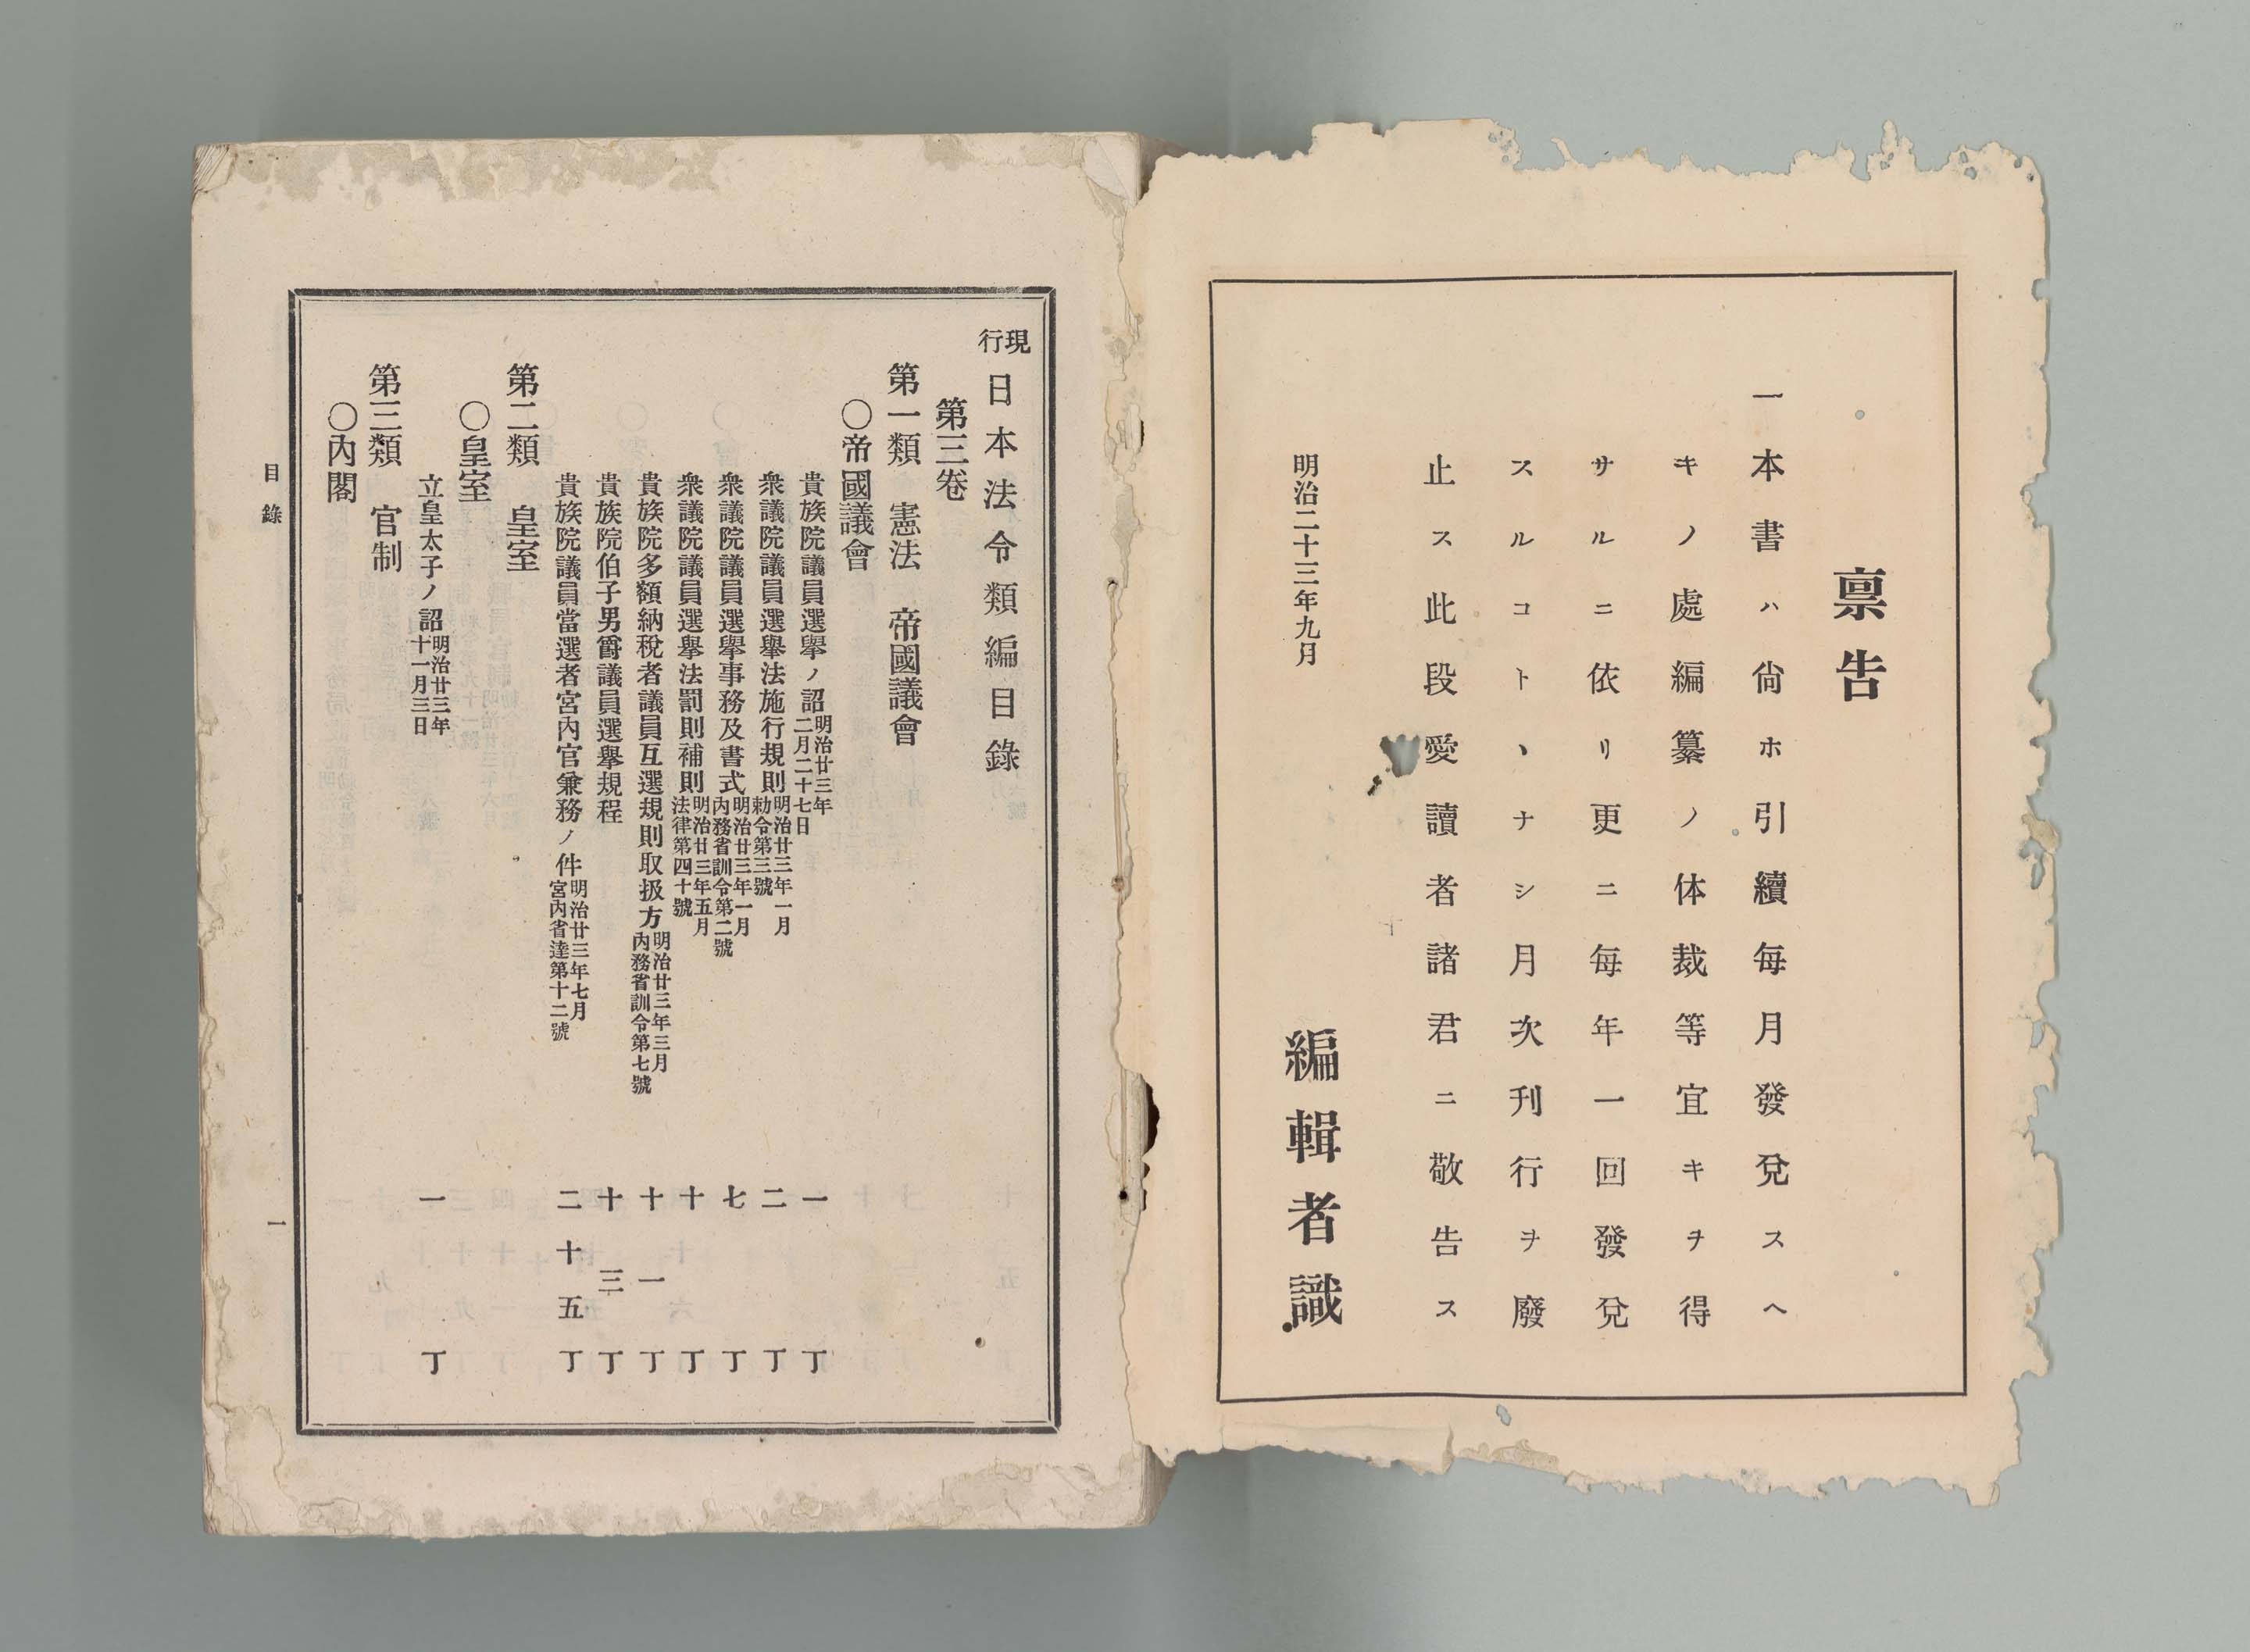 稟告
一本書ハ尙ホ引續每月發兌スヘ
キノ處編纂ノ体裁等宜キヲ得
サルニ依リ更ニ每年一回發兌
スルコトヽナシ月次刊行ヲ廢
止ス此段愛讀者諸君ニ敬告ス
明治二十三年九月
編輯者識
現行日本法令類編目錄
第三卷
第一類 憲法 帝國議會
〇帝國議會
貴族院議員選擧ノ詔 明治廿三年二月二十七日 一丁
衆議院議員選擧法施行規則 明治廿三年一月勅令第三號 二丁
衆議院議員選擧事務及書式 明治廿三年一月內務省訓令第二號 七丁
衆議院議員選擧法罰則補則 明治廿三年五月法律第四十號 十丁
貴族院多額納稅者議員互選規則取扱方 明治廿三年三月內務省訓令第七號 十一丁
貴族院伯子男爵議員選擧規程 十三丁
貴族院議員當選者宮內官兼務ノ件 明治廿三年七月宮內省達第十二號 二十五丁
第二類 皇室
〇皇室
立皇太子ノ詔 明治廿三年十一月三日 一丁
第三類 官制
〇內閣
目錄
一